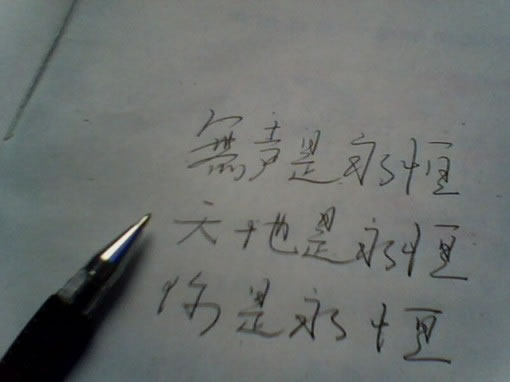 無声是永恒
天地是永恒
你是永恒